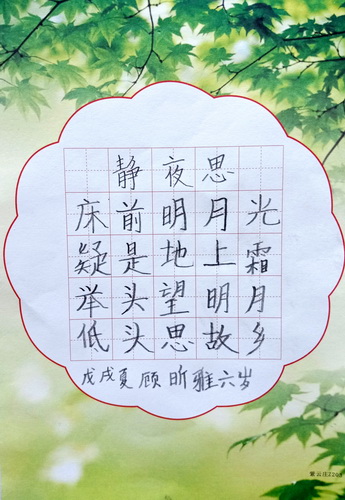 静夜思
床前明月光
疑是地上霜
举头望明月
低头思故乡
戊戌夏 顾昕雅六岁